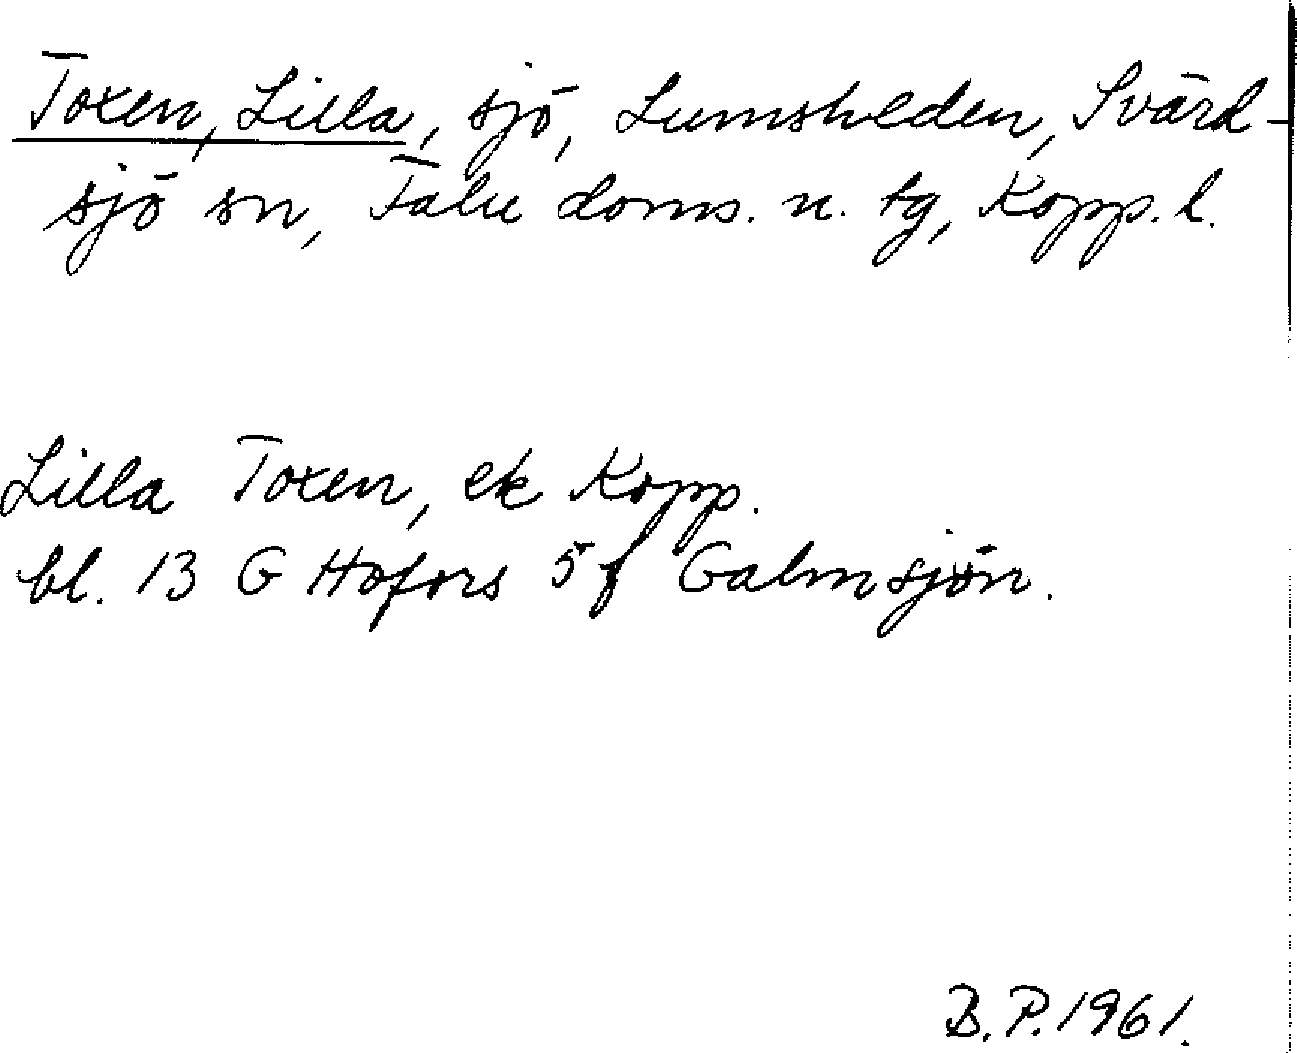 Toxen, Lilla, sjö, Lumsheden, Svärd-
sjö sn, Falu doms. n. tg, Kopp. l.
Lilla Toxen, ek Kopp.
bl. 13 G Hofors 5 f Galmsjön.
B.P. 1961.